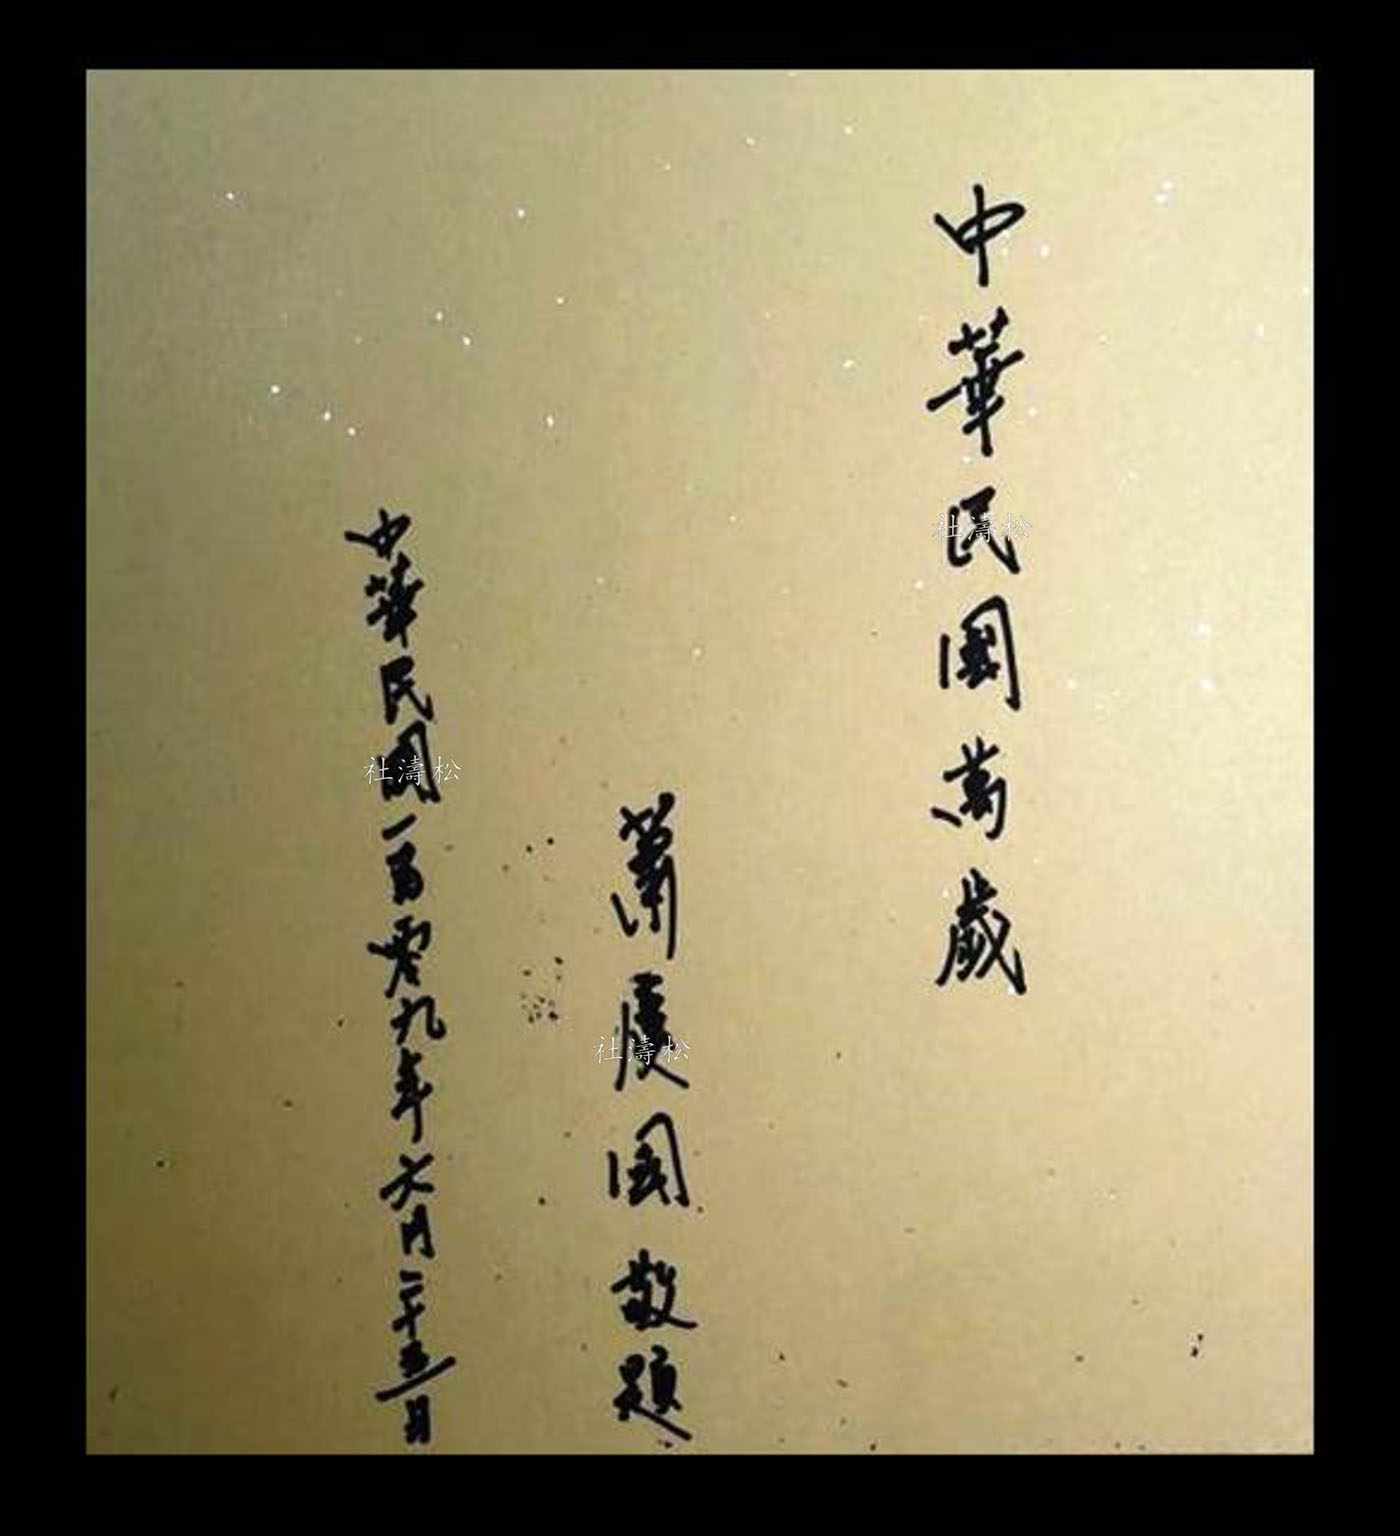 中華民國萬歲
蕭慶國敬題
中華民國一百零九年六月二十五日
松濤社
松濤社
松濤社